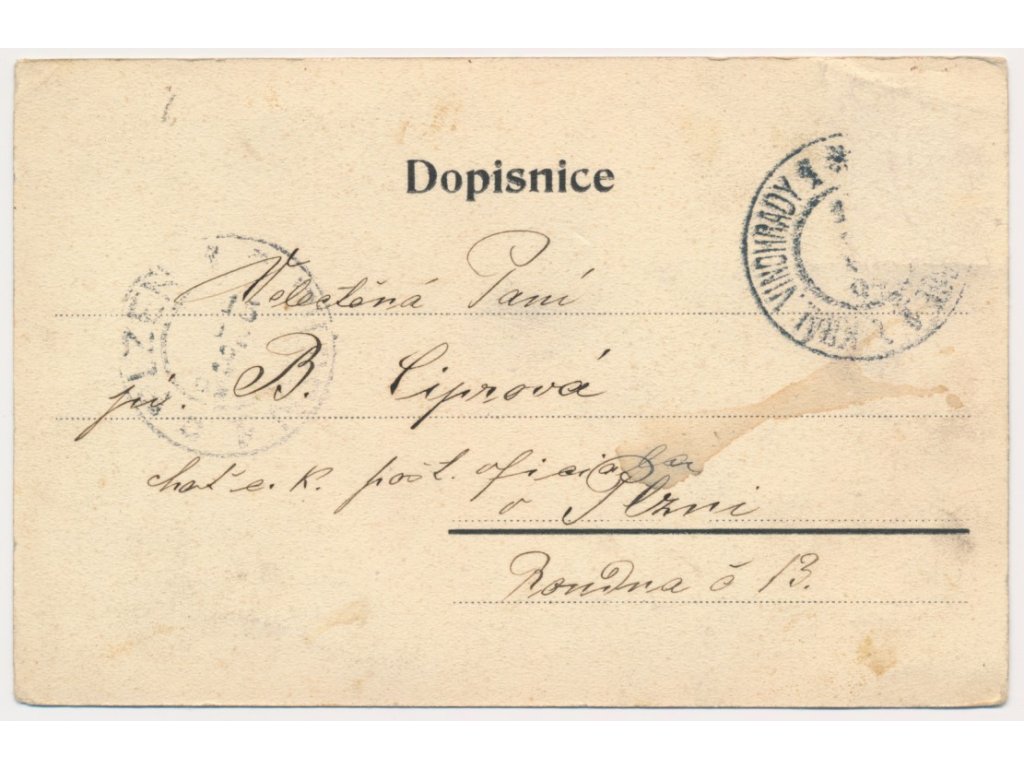 Dopisnice
KRÁL. VINOHRADY 1 *
PLZEŇ
Velectěná Paní
pí. B. Ciprová
choť c. k. pošt. oficiála
v Plzni
Roudna č 13.